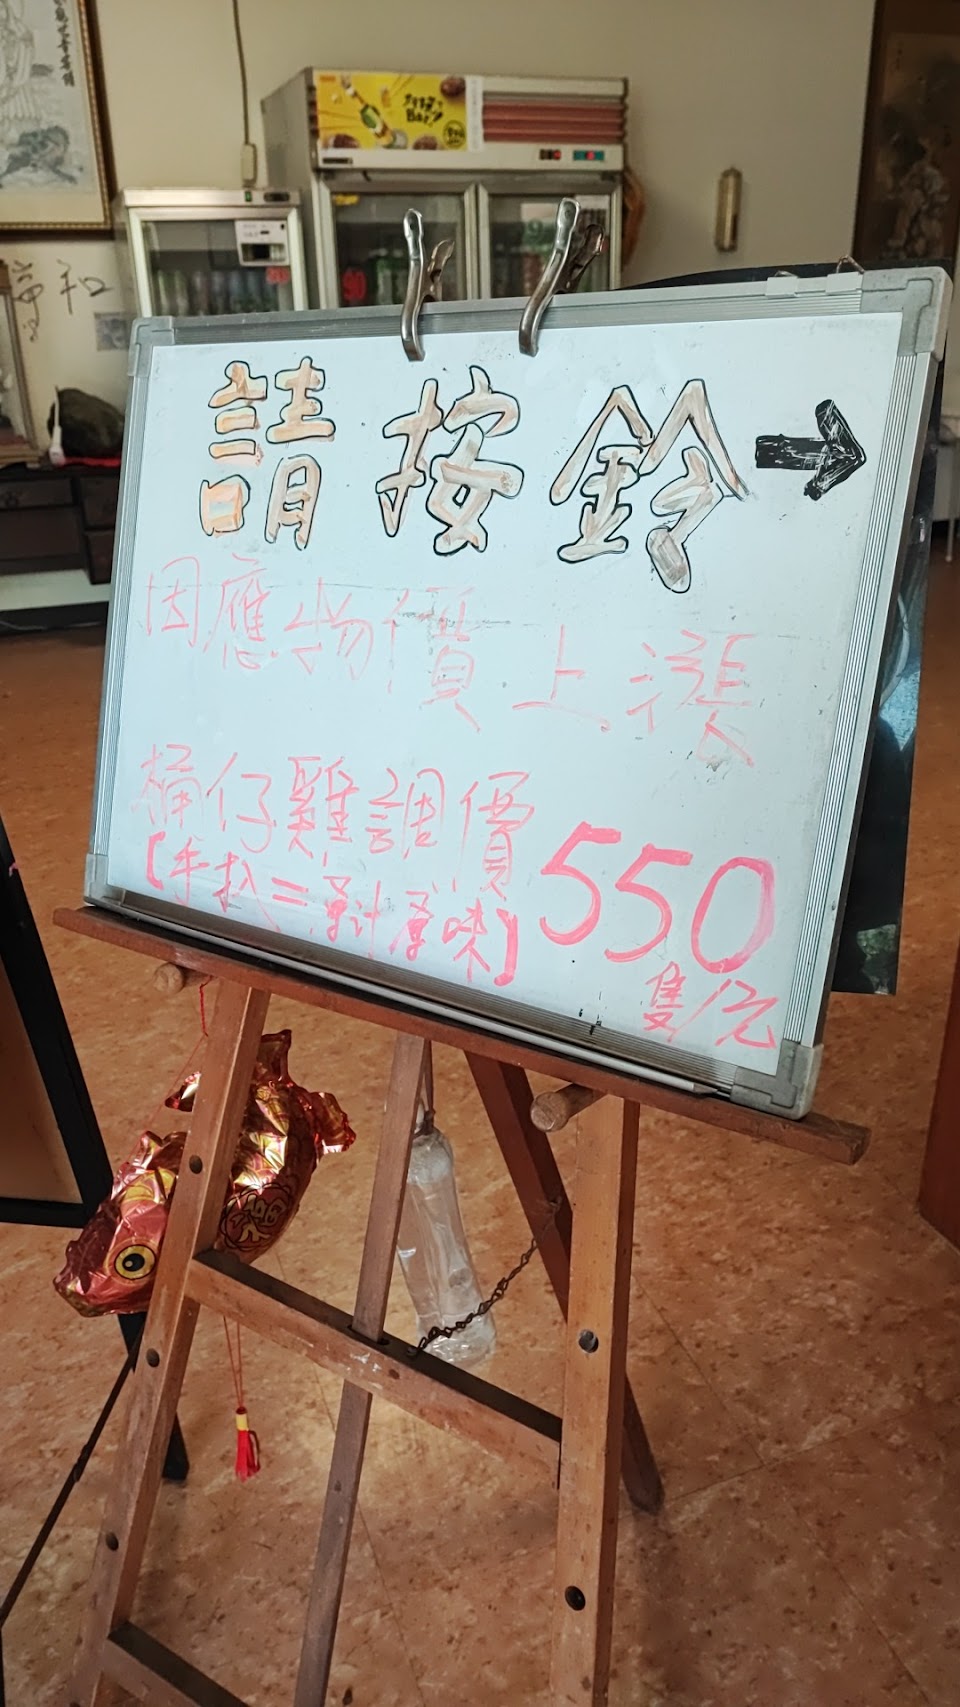 請按鈴→
因應物價上漲
桶仔雞調價
【手扒=原汁原味】
550
隻/元